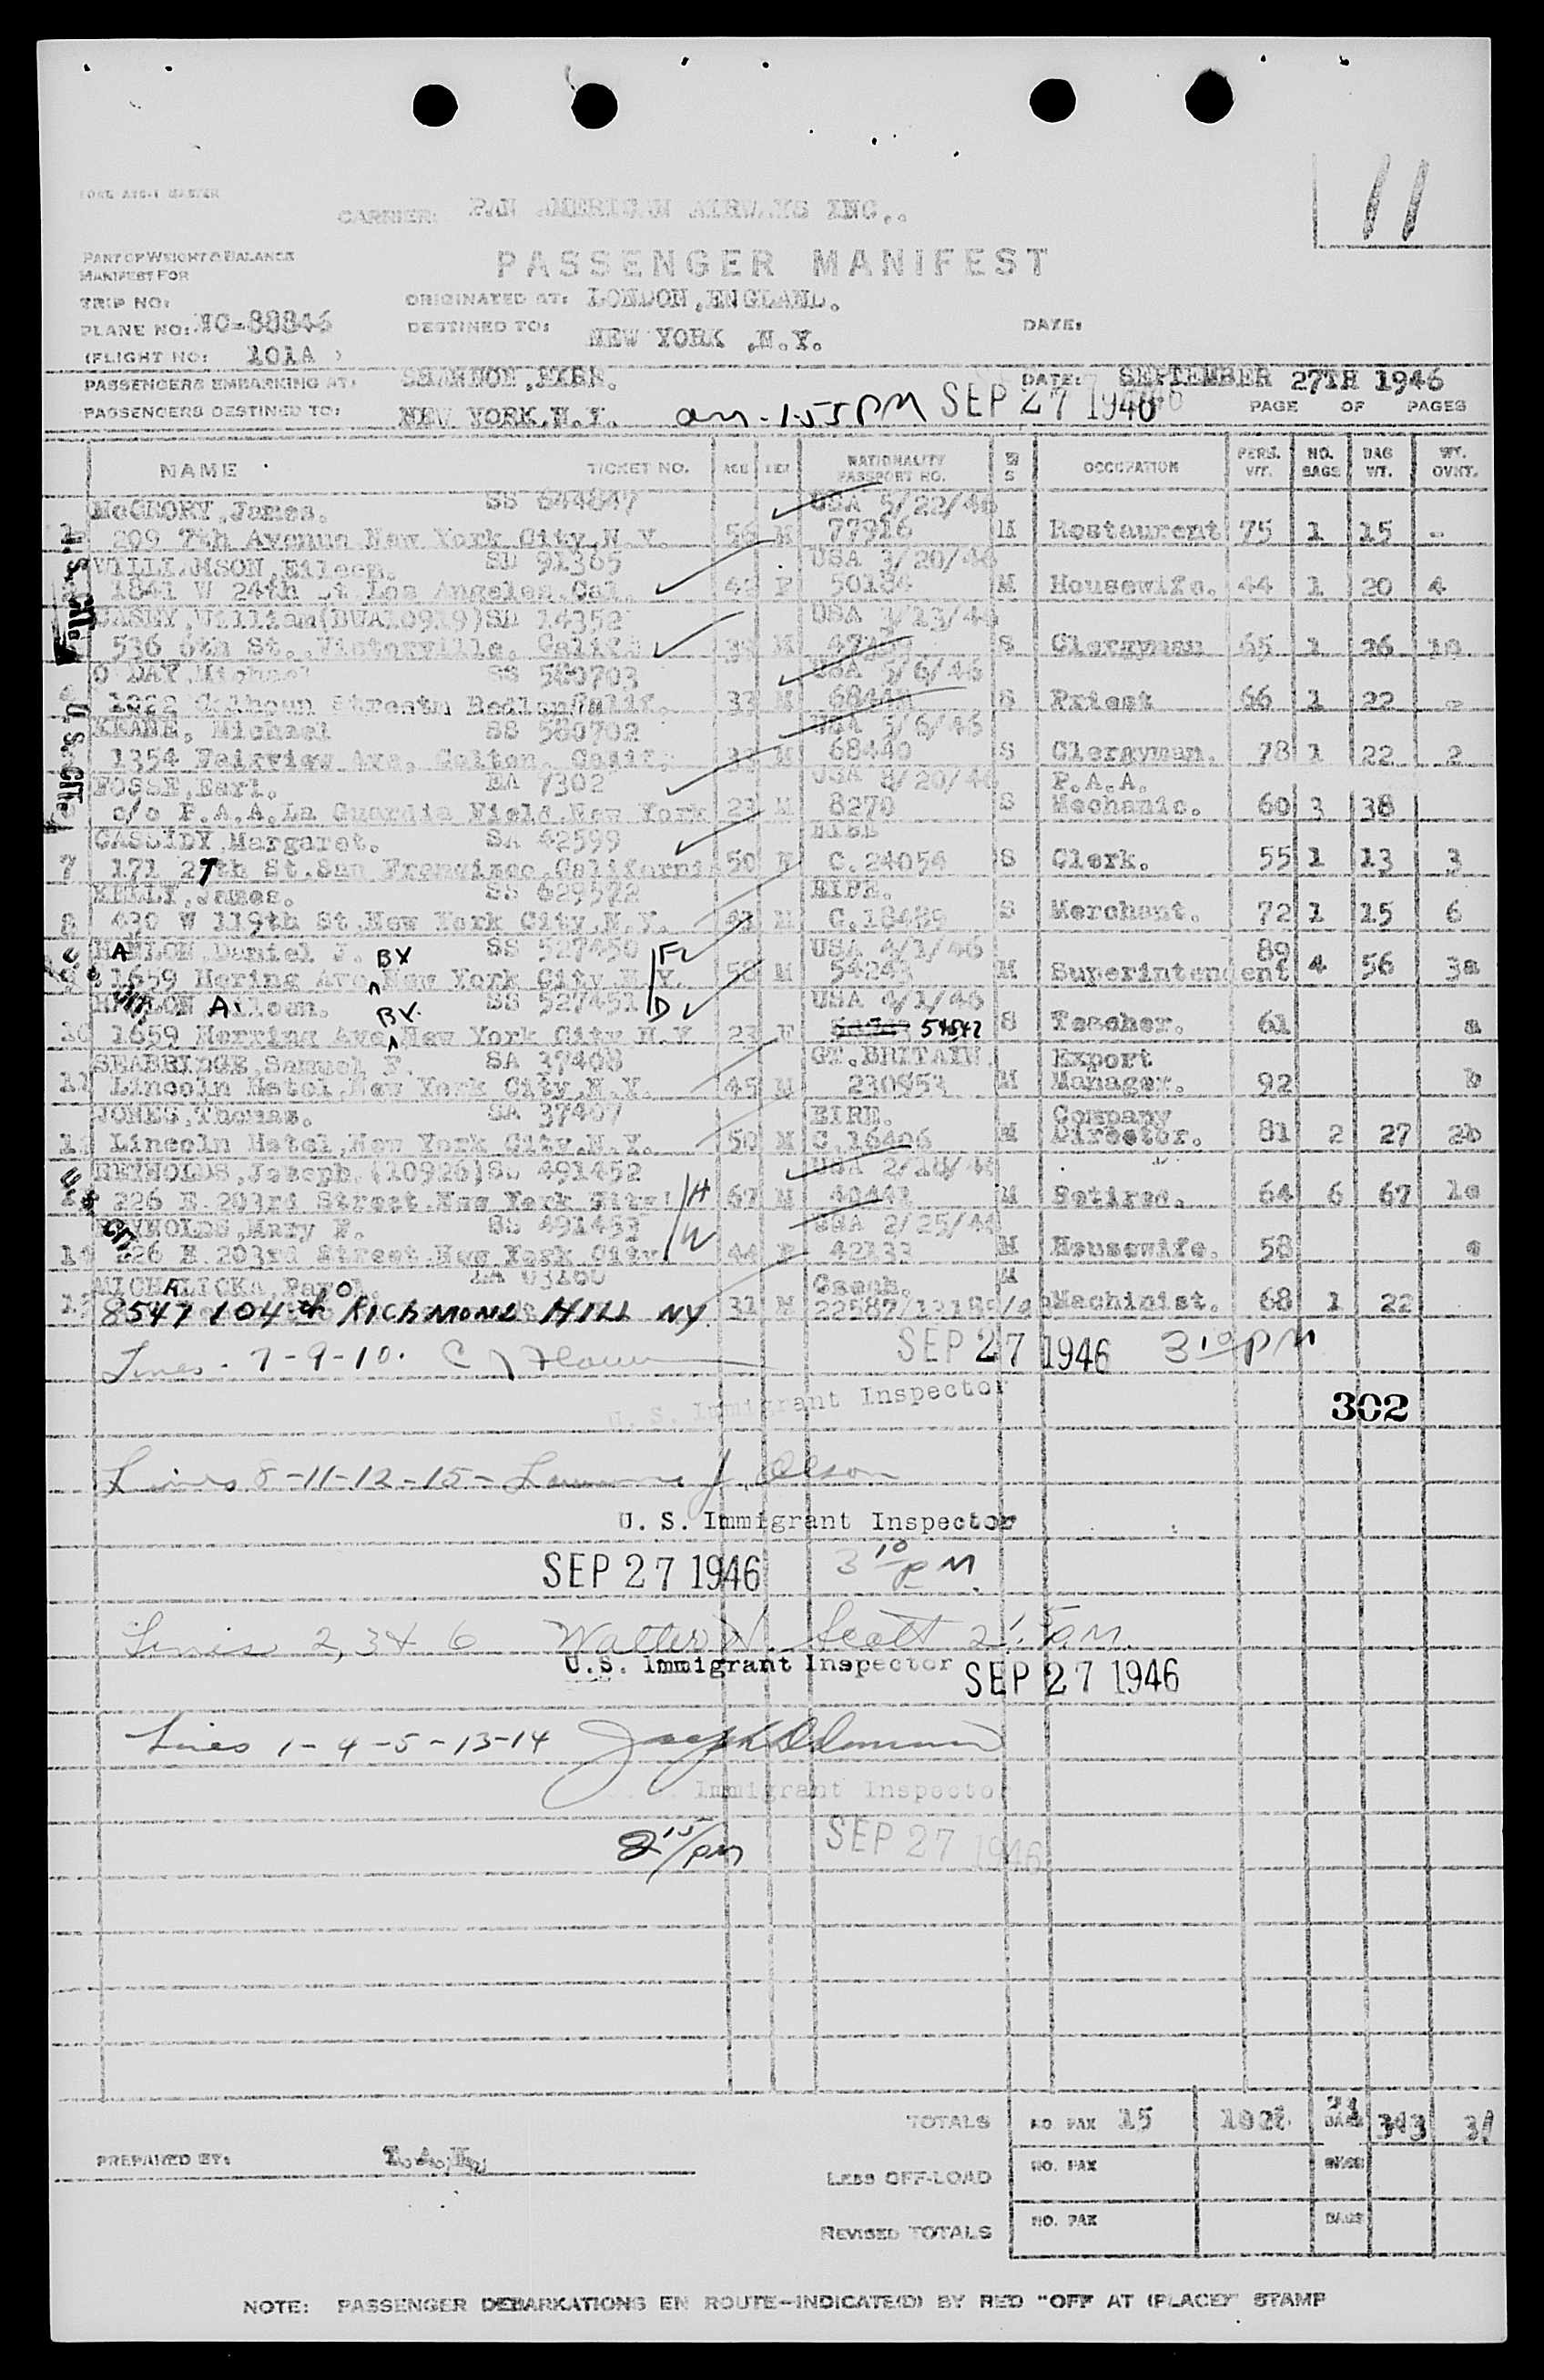 11
FORM ATS-1 MASTER
CARRIER: PAN AMERICAN AIRWAYS INC..
PART OF WEIGHT & BALANCE
MANIFEST FOR
PASSENGER MANIFEST
TRIP NO:
ORIGINATED AT: LONDON, ENGLAND.
PLANE NO: NC-88846
DESTINED TO: NEW YORK ,N.Y.
DATE:
(FLIGHT NO: 101A )
PASSENGERS EMBARKING AT: SHANNON, EIRE. DATE: SEPTEMBER 27TH 1946
PASSENGERS DESTINED TO: NEW YORK, N.Y. arr - 1:55 PM SEP 27 1946 PAGE OF PAGES
NAME TICKET NO. AGE SEX NATIONALITY PASSPORT NO. M S OCCUPATION PERS. WT. NO. BAGS BAG WT. WT. OVHT.
James. SS 644847 USA 5/22/46
1 299 7th Avenue New York City, N.Y. 56 M 77916 M Restaurent 75 1 15 -
WILLIAMSON, Eileen. SU 91365 USA 3/20/46
1841 W 24th St Los Angeles, Cal. 42 F 50184 M Housewife. 44 1 20 4
William(BWA10919)SU 14352 USA 3/13/46
536 6th St., Victorville, Calif. M S Clergyman 65 1 26
O DAY, Michael SS 580703 USA 5/6/46
1022 Calhoun Calif. 33 M S Priest 66 1 22 -
KEANE, Michael SS 580702 USA 5/6/46
1354 Fairview Ave, Colton, Calif. 33 M 68440 S Clergyman. 78 1 22 2
FOSSE, Earl. EA 7302 USA 8/20/46 P.A.A.
c/o P.A.A, La Guardia Field, New York 23 M 8270 S Mechanic. 60 3 38
CASSIDY, Margaret. SA 42599 EIRE
7 171 27th St. San Francisco, California 50 F C.24054 S Clerk. 55 1 13 3
KELLY, James. SS 629572 EIRE.
8 430 W 119th St, New York City, N.Y. M C.18489 S Merchant. 72 1 15 6
HANLON, Daniel J. BX SS 527450 FR USA 4/1/46 89
1659 Hering Ave New York City N.Y. 58 M 54243 M Superintendent 4 56 3a
HANLON Aileen. BX. SS 527451 D USA 4/1/46
10 1659 Herring Ave New York City N.Y 23 F 54542 S Teacher. 61 a
SEABRIDGE, Samuel F. SA 37408 GT. BRITAIN. Export
11 Lincoln Hotel, New York City, N.Y. 45 M 230953 M Manager. 92 b
JONES, Thomas. SA 37407 EIRE. Company
12 Lincoln Hotel, New York City, N.Y. 50 M C.16406 M Director. 81 2 27 2b
REYNOLDS, Joseph. (10926)SS 491452 USA 2/18/46
226 E 203rd Street, New York City H 67 M M Retired. 64 6 67 1c
REYNOLDS, Mary F. SS 491453 USA 2/25/46
14 226 E 203rd Street, New York City W 44 F 42133 M Housewife. 58 c
MICHALICKA, Pavol. Czech. M
8547 104th RICHMOND HILL NY. 31 M Machinist. 68 1 22
Lines - 7-9-10. SEP 27 1946 3 10 PM
U. S. Immigrant Inspector
302
Lines 8-11-12-15- Lawrence J. Olson
U. S. Immigrant Inspector
SEP 27 1946 3 10 PM
Lines 2, 3 & 6 Walter H. Scott 2:15 P.M.
U.S. Immigrant Inspector SEP 27 1946
Lines 1-4-5-13-14 Joseph
Immigrant Inspector
2 15/PM SEP 27 1946
TOTALS NO PAX 15 21 BAGS 343
PREPARED BY:
LESS OFF-LOAD NO. PAX BAGS
REVISED TOTALS NO. PAX BAGS
NOTE: PASSENGER DEBARKATIONS EN ROUTE-INDICATE(D) BY RED "OFF AT (PLACE)" STAMP